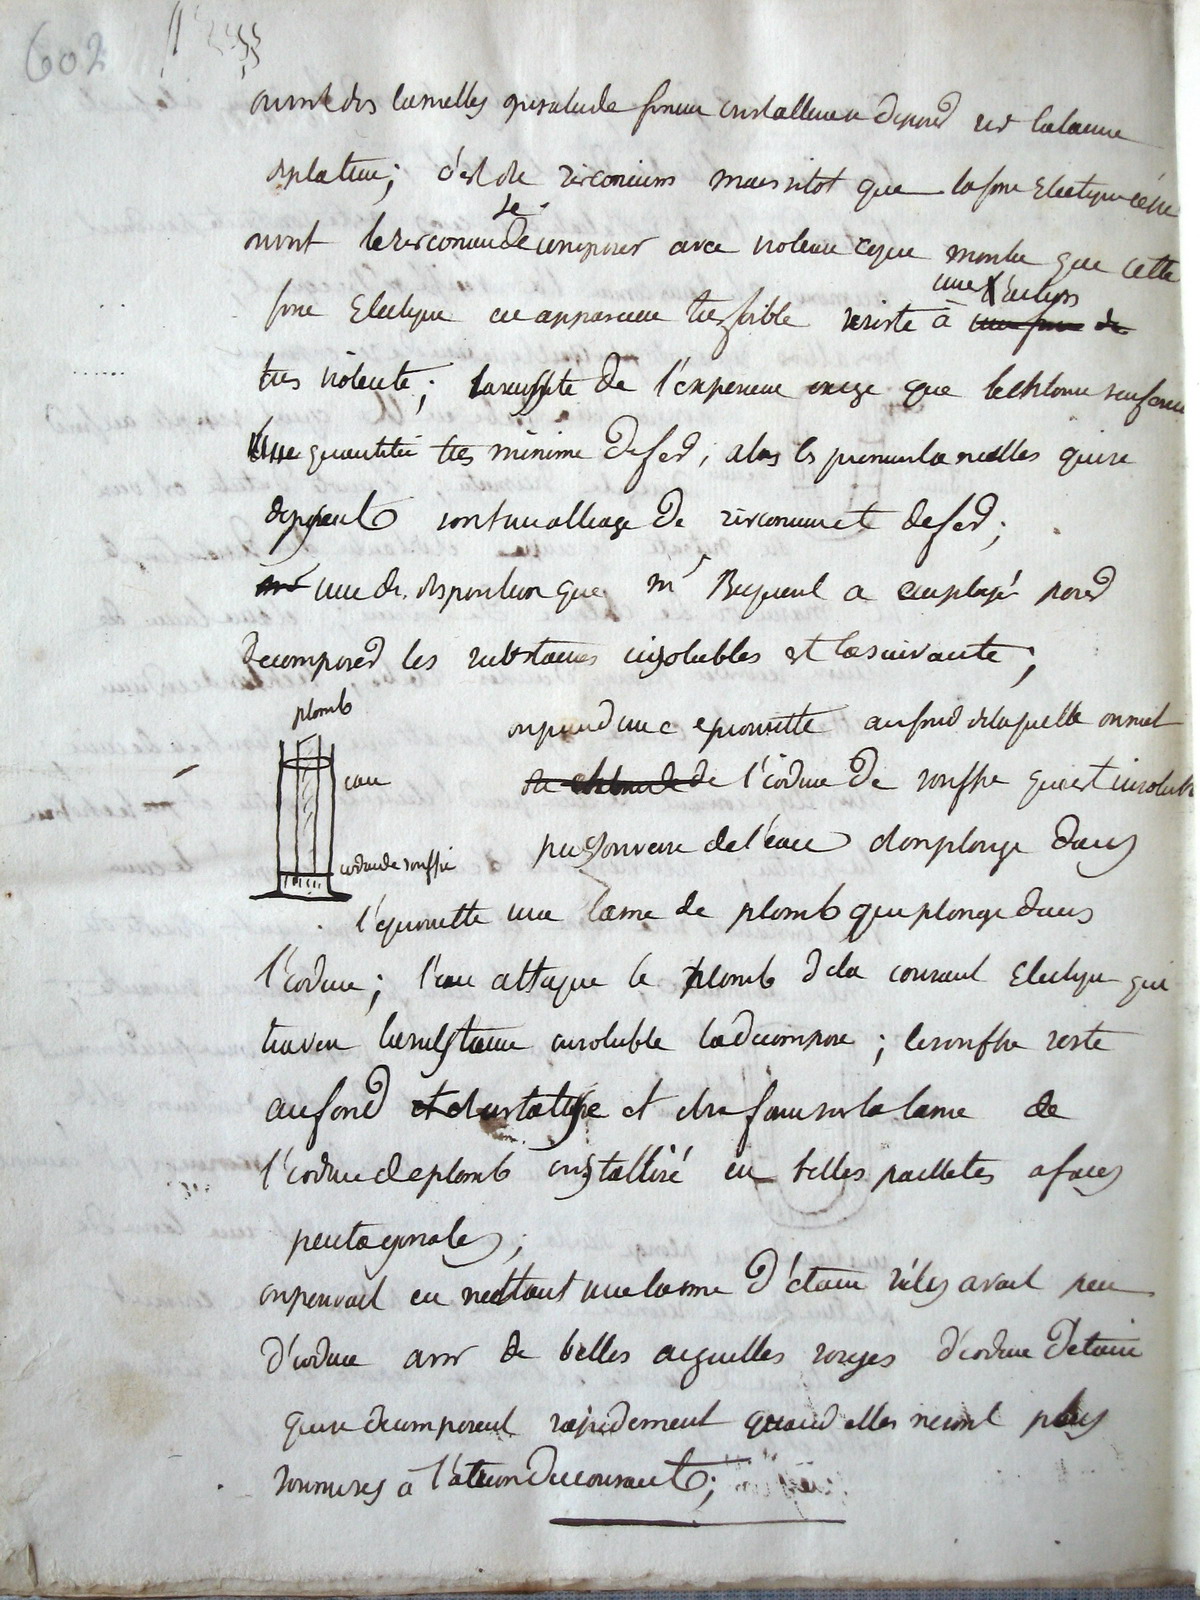 602
on voit des lamelles qui valu de forme cristalline se deposer sur la lame
de platine; c'est de zirconium mais sitot que la force Electrique cesse
on voit le zirconium se decomposer avec violence ce que montre que cette
force Electrique en apparence tres foible resiste à une action
tres violente; la reussite de l'experience exige que le chlorure renferme
Une quantité tres minime de fer; alors les premieres lamelles qui se
deposent sont un alliage de zirconium et de fer;
une des disposition que mr Becquerel a employé pour
decomposer les substances insolubles est la suivante;
plomb
on prend une eprouvette au fond de laquelle on met
eau
de l'iodure de soufre qui est insoluble
puis on verse de l'eau et on plonge dans
iodure de souffre
l'eprouvette une lame de plomb qui plonge dans
l'iodure; l'eau attaque le plomb de la courant Electrique qui
traverse la substance insoluble la decompose; le souffre reste
au fond et il se forme sur la lame de
l'iodure de plomb cristallisé en belles paillettes a faces
pentagonales;
on pouvait en mettant une lame d'étain s'il y avait peu
d'iodure avoir de belles aiguilles rouges d'iodure d'etain
qui se decomposent rapidement quand elles ne sont plus
soumises à l'action du courant;